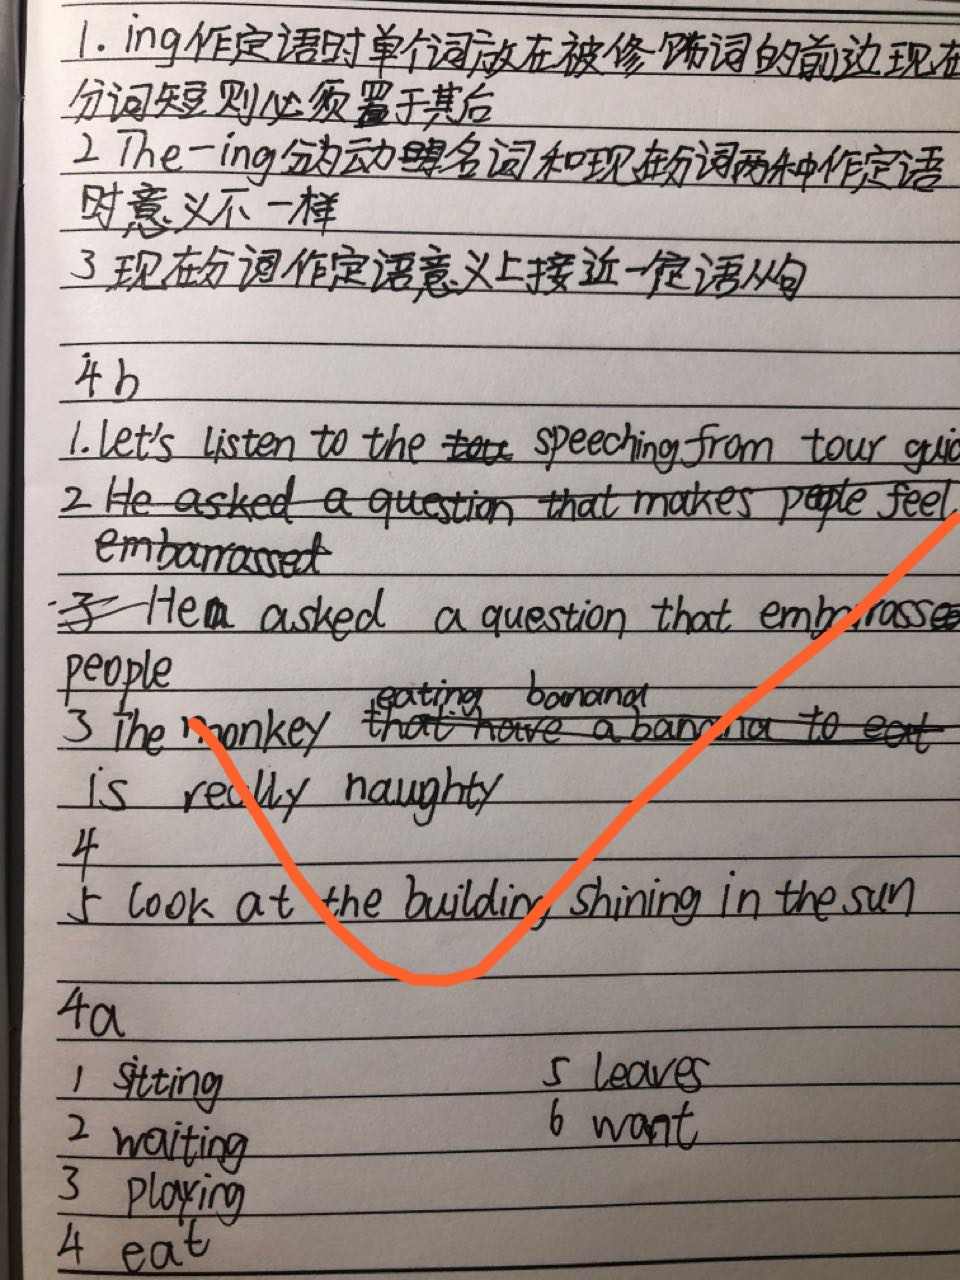 1. ing作定语时单个词放在被修饰词的前边现在
分词短则必须置于其后
2 The-ing分为动名词和现在分词两种作定语
时意义不一样
3 现在分词作定语意义上接近一定语从句
4b
1. Let's listen to the speeching from tour
2 He asked a question that makes people feel
embarrassed
3 He asked a question that embarrassed
people
eating banana
3 The monkey that have a banana to eat
is really naughty
4
5 Look at the building shining in the sun
4a
1 sitting 5 leaves
2 waiting 6 want
3 playing
4 eat